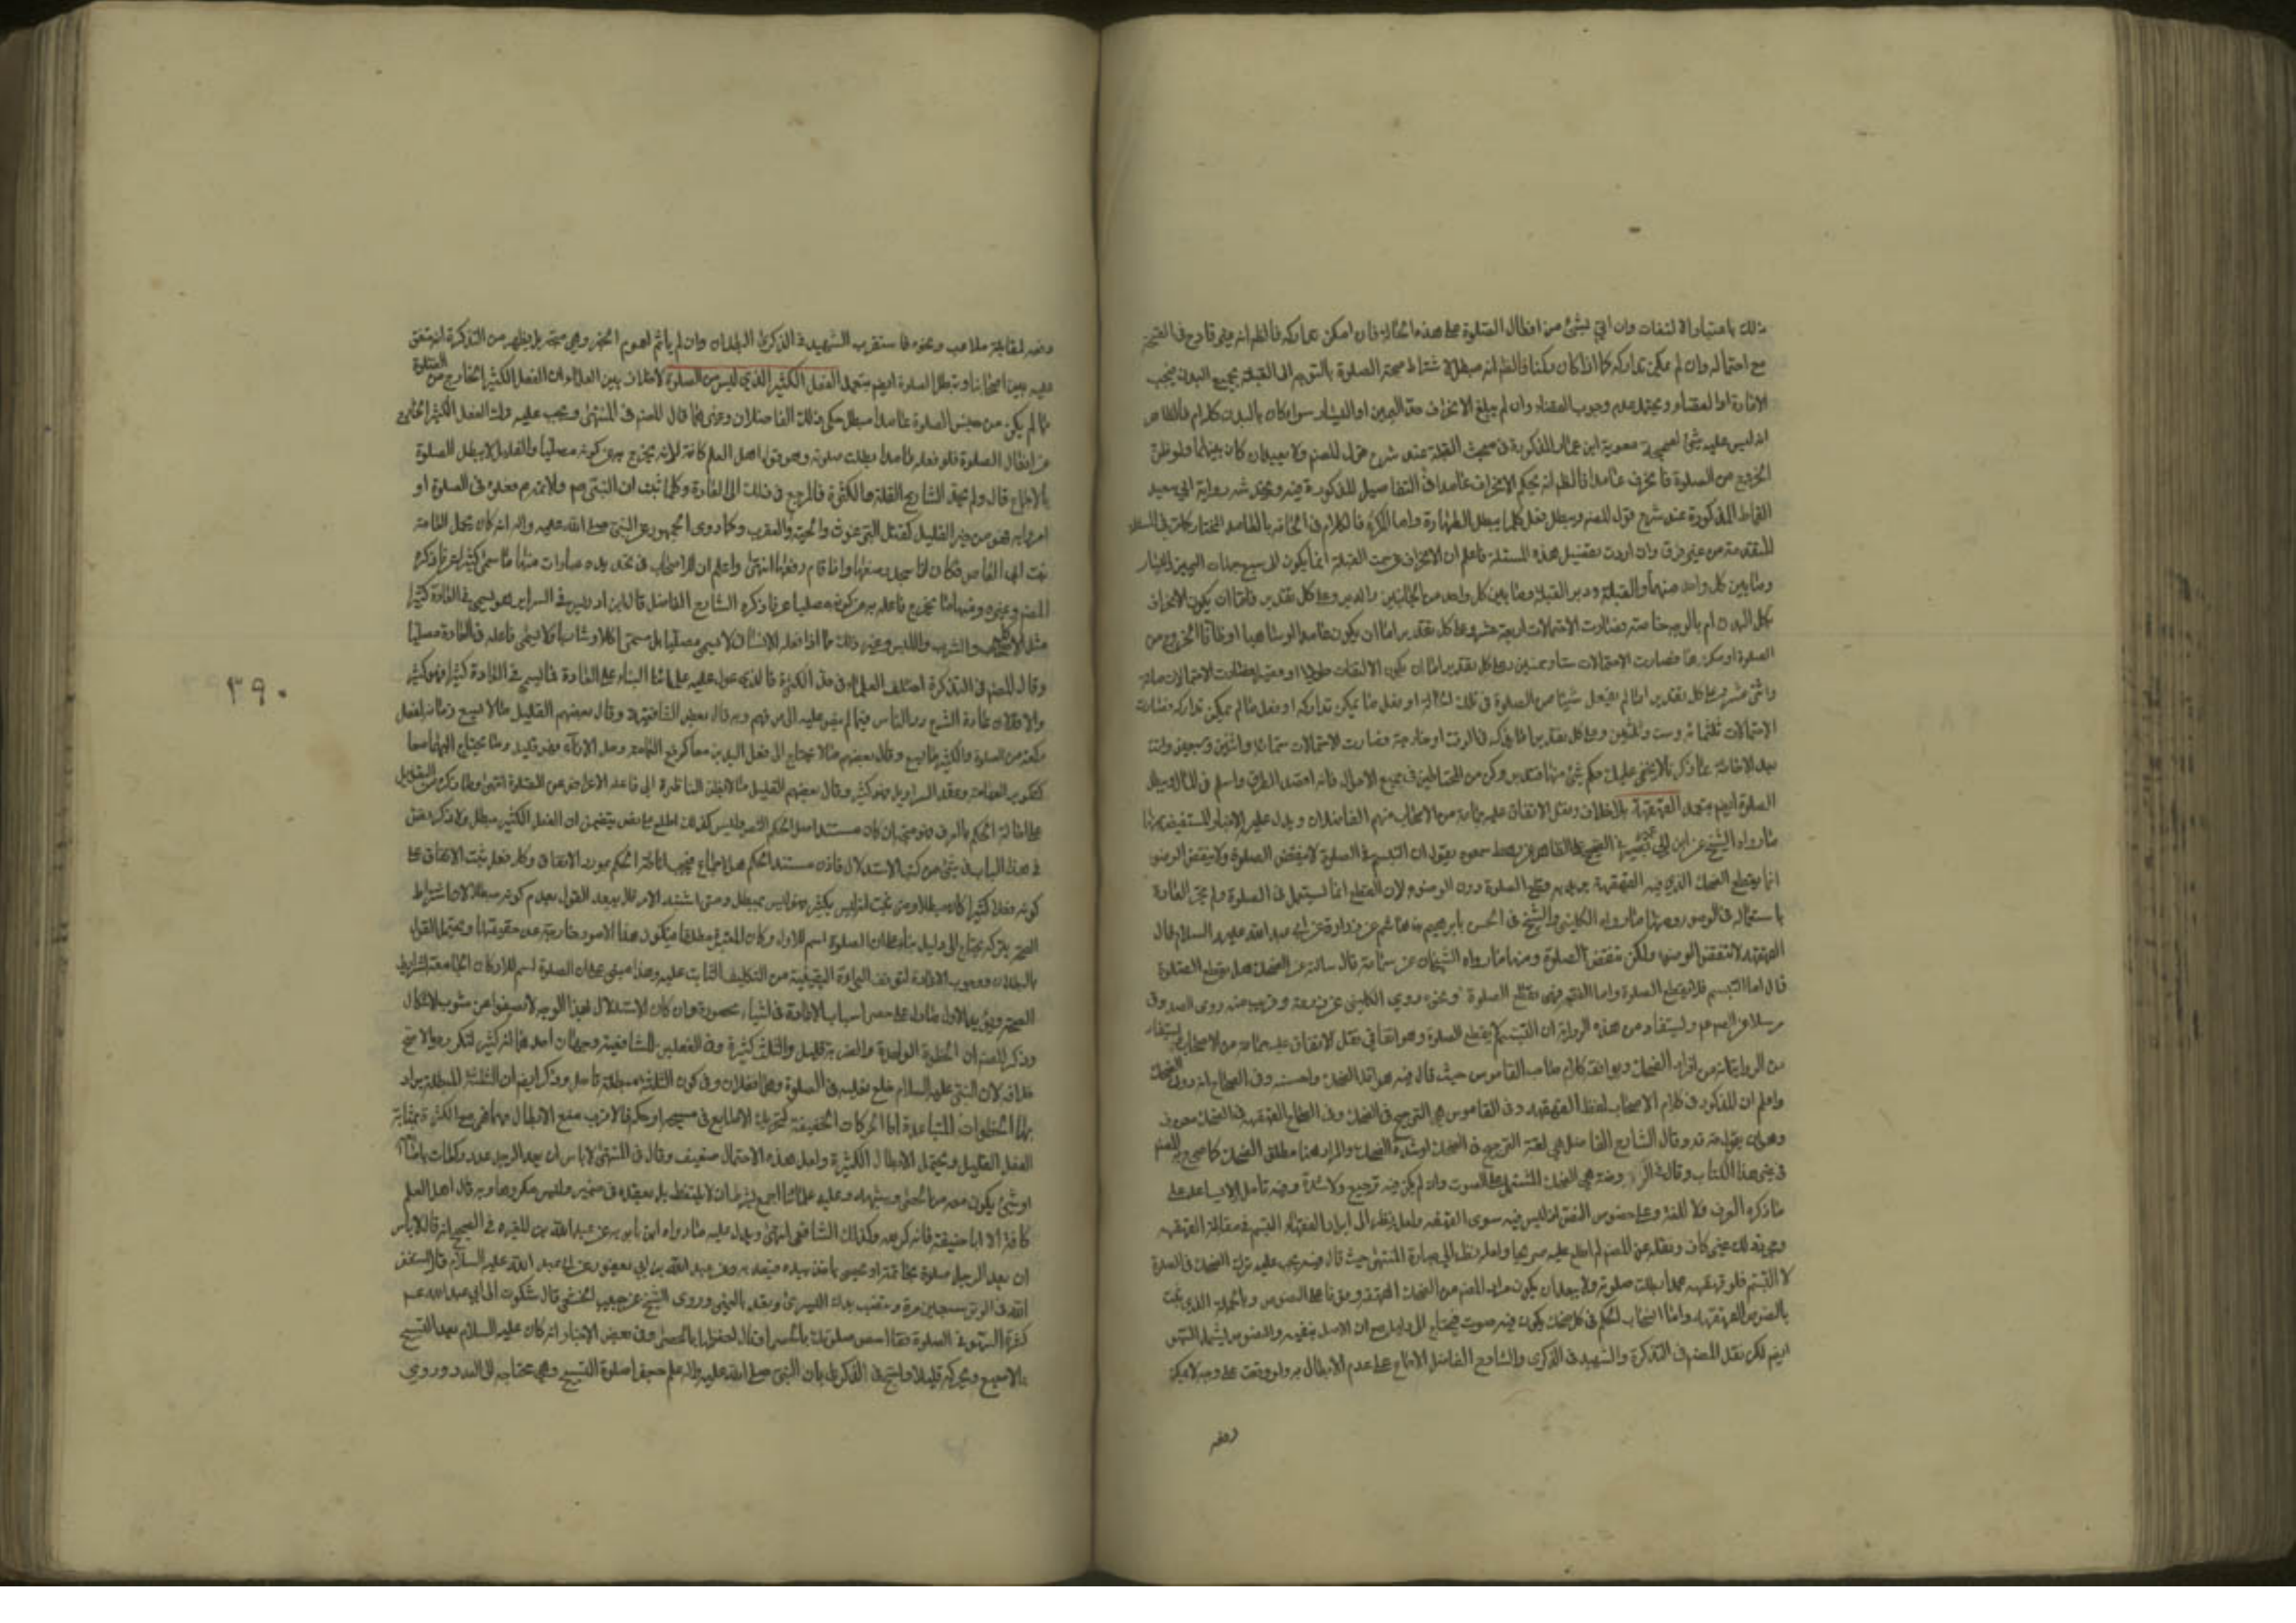 ذلك باعتبار الالتفات وان اتى بشئ من افعال الصلوة على هذه الحالة فان امكن تداركه فالظ انه غير قادح في الصحة
مع احتماله وان لم يمكن تداركه كما اذا كان ركنا فالظ انه مبطل لاشتراط صحة الصلوة بالتوجه الى القبلة بجميع البدن فيجب
الاعادة او القضاء ويحتمل عدم وجوب القضاء وان لم يبلغ الانحراف حد اليمين او اليسار سواء كان بالبدن كله ام فالظاهر
انه ليس عليه شئ لصحيحة معوية ابن عمار المذكورة في مبحث القبلة عند شرح قول المصنم ولا يعيد ان كان بينهما ولو ظن
الخروج من الصلوة فانحرف عامدا فالظ انه بحكم الانحراف عامدا في التفاصيل المذكورة فيه ويخدشه رواية ابي سعيد
القماط المذكورة عند شرح قول المصنم ويبطل بفعل كلما يبطل الطهارة واما المكره فالكلام في الحاقه بالعامد المختار كما في المسئلة
المتقدمة من غير فرق وان اردت تفصيل هذه المسئلة فاعلم ان الانحراف عن سمت القبلة انما يكون الى سبع جهات اليمين واليسار
وما بين كل واحد منهما والقبلة ودبر القبلة وما بين كل واحد من الجانبين والدبر وعلى كل تقدير فاما ان يكون الانحراف
بكل البدن ام بالوجه خاصة فصارت الاحتمالات اربعة عشر وعلى كل تقدير اما ان يكون عامدا او ساهيا او ظانا الخروج من
الصلوة او مكرها فصارت الاحتمالات ستا وخمسين وعلى كل تقدير اما ان يكون الالتفات طويلا او قصيرا فصارت الاحتمالات مائة
واثنى عشر وعلى كل تقدير اما لم يفعل شيئا من الصلوة في تلك الحالة او فعل ما يمكن تداركه او فعل ما لم يمكن تداركه فصارت
الاحتمالات ثلثمائة وست وثلثين وعلى كل تقدير اما يدركه في الوقت او خارجه فصارت الاحتمالات ستمائة واثنين وسبعين وانت
بعد الاحاطة بما ذكرنا لا يخفى عليك حكم شئ منها فتدبر وكن من المحتاطين في جميع الاحوال فانه اقصد الطرق واسلم في المآل ويبطل
الصلوة ايضم بتعمد القهقهة بلا خلاف ونقل الاتفاق عليه جماعة من الاصحاب منهم الفاضلان ويدل عليه الاخبار المستفيضة منها
ما رواه الشيخ عن ابن ابي عمير في الصحيح على الظاهر عن رهط سمعوه يقول ان التبسم في الصلوة لا ينقض الصلوة ولا ينقض الوضوء
انما يقطع الضحك الذي فيه القهقهة يريد به قطع الصلوة دون الوضوء لان القطع انما يستعمل في الصلوة ولم يجر العادة
باستعماله في الوضوء ومنها ما رواه الكليني والشيخ في الحسن بابرهيم بن هاشم عن زرارة عن ابي عبد الله عليه السلام قال
القهقهة لا تنقض الوضوء ولكن تنقض الصلوة ومنها ما رواه الشيخان عن سماعة قال سالته عن الضحك هل يقطع الصلوة
قال اما التبسم فلا يقطع الصلوة واما القهقهة فهي تقطع الصلوة ونحوه روى الكليني عن زرعة وقريب منه روى الصدوق
مرسلا عن الصم عم ويستفاد من هذه الرواية ان التبسم لا يقطع الصلوة وهو اتفاقي نقل الاتفاق عليه جماعة من الاصحاب ويستفاد
من الروايتان من افراد الضحك ويوافقه كلام صاحب القاموس حيث قال فيه هو اقل الضحك واحسنه وفي الصحاح انه دون الضحك
واعلم ان المذكور في كلام الاصحاب لفظ القهقهة وفي القاموس هي الترجيع في الضحك وفي الصحاح القهقهة في الضحك معروف
وهو ان يقول قه قه وقال الشارح الفاضل هي لغة الترجيع في الضحك او شدة الضحك والمراد هنا مطلق الضحك كما صرح به المصنم
في غير هذا الكتاب وقال في الروضة هي الضحك المشتمل على الصوت وان لم يكن فيه ترجيع ولا شدة وفيه تامل اذ لا يساعد على
ما ذكره العرف فلا اللغة وعلى خصوص النقض اذ ليس فيه سوى القهقهة ولعل نظره الى ايراد الفقهاء التبسم في مقابلة القهقهة
وغير ذلك غير كاف ونقله عن المصنم لم اطلع عليه صريحا ولعله نظر الى عبارة المنتهى حيث قال فيه يجب عليه ترك الضحك في الصلوة
لا التبسم فلو قهقه عمدا بطلت صلوته ولا يبعد ان يكون مراد المصنم من الضحك القهقهة وبالجملة الذي يثبت
بالنصوص القهقهة واما انسحاب الحكم في كل ضحك يكون فيه صوت فيحتاج الى دليل مع ان الاصل ينفيه والنصوص يشمل السهو
ايضم لكن نقل المصنم في التذكرة والشهيد في الذكرى والشارح الفاضل الاجماع على عدم الابطال به ولو وقعت على وجه لا يمكن
دفعه
دفعه لمقابلة ملاعب ونحوه فاستقرب الشهيد في الذكرى البطلان وان لم ياثم لعموم الخبر وهو متجه بل يظهر من التذكرة انه متفق
عليه بين اصحابنا ويبطل الصلوة ايضم بتعمد الفعل الكثير الذي ليس من الصلوة لا خلاف بين العلماء في ان الفعل الكثير الخارج من الصلوة
مما لم يكن من جنس الصلوة عامدا مبطل حكى ذلك الفاضلان وغيرهما قال المصنم في المنتهى ويجب عليه ترك الفعل الكثير الخارج
عن افعال الصلوة فلو فعله عامدا بطلت صلوته وهو قول اهل العلم كافة لانه يخرج به عن كونه مصليا والقليل لا يبطل الصلوة
بالاجماع قال ولم يحد الشارع القلة والكثرة فالمرجع في ذلك الى العادة وكلما ثبت ان النبي صم والائمة عم فعلوه في الصلوة او
امروا به فهو من حيز القليل كقتل البرغوث والحية والعقرب وكما روى الجمهور عن النبي صلى الله عليه واله انه كان يحمل امامة
بنت ابي العاص فكان اذا سجد وضعها واذا قام رفعها انتهى واعلم ان للاصحاب في تحديده عبارات منها ما سمى كثيرا عرفا ذكره
المصنم وغيره ومنها ما يخرج فاعله به عن كونه مصليا عرفا ذكره الشارح الفاضل قال ابن ادريس في السراير هو ما يسمى في العادة كثيرا
مثل الاكل والشرب واللبس وغير ذلك مما اذا فعله الانسان لا يسمى مصليا بل يسمى اكلا وشاربا ولا يسمى فاعله في العادة مصليا
وقال المصنم في التذكرة اختلف العلماء في حد الكثرة فالذي عول عليه علمائنا البناء على العادة فما يسمى في العادة كثيرا فهو كثير
والا فلا لان عادة الشرع رد الناس فيما لم ينص عليه الى عرفهم وبه قال بعض الشافعية وقال بعضهم القليل ما لا يسع زمانه لفعل
ركعة من الصلوة والكثير ما يسع وقال بعضهم ما لا يحتاج الى فعل اليدين معا كرفع العمامة وحل الازار فهو قليل وما يحتاج اليهما معا
كتكوير العمامة وعقد السراويل فهو كثير وقال بعضهم القليل ما لا يظن الناظر الى فاعله الاعراض عن الصلوة انتهى وما ذكره من التعويل
على احالة الحكم بالعرف هو متجه ان كان مستند اصل الحكم النص وليس كذلك اطلع على نص يتضمن ان الفعل الكثير مبطل ولا ذكر نص
في هذا الباب في شئ من كتب الاستدلال فاذن مستند الحكم هو الاجماع فيجب اناطة الحكم بمورد الاتفاق وكل فعل ثبت الاتفاق على
كونه فعلا كثيرا كان مبطلا ومتى ثبت انه ليس بكثير فهو ليس بمبطل ومتى اشتبه الامر فلا يبعد القول بعدم كونه مبطلا لان اشتراط
الصحة بتركه يحتاج الى دليل بناء على ان الصلوة اسم للاركان المعينة مطلقا فيكون هذا الامور خارجة عن حقيقتها ويحتمل القول
بالبطلان ووجوب الاعادة لتوقف البراءة اليقينية من التكليف الثابت عليه وهذا مبني على ان الصلوة اسم للاركان الجامعة لشرايط
الصحة ويؤيد الاول ما دل على حصر اسباب الاعادة في اشياء محصورة وان كان الاستدلال بهذا الوجه لا يصفو عن شوب الاشكال
وذكر المصنم ان الخطوة الواحدة والضربة قليل والثلث كثيرة وفي الفعلين للشافعية وجهان احدهما انه كثير لتكرره والاصح
خلافه لان النبي عليه السلام خلع نعليه في الصلوة وهما فعلان وفي كون الثلثة مبطلة تامل وذكر ايضم ان الثلثة المبطلة يراد
بها الخطوات المتباعدة اما الحركات الخفيفة كتحريك الاصابع في مسبحة او حكة فالاقرب منع الابطال بها فهي مع الكثرة بمثابة
الفعل القليل ويحتمل الابطال للكثرة ولعل هذه الاحتمال ضعيف وقال في المنتهى لا باس ان يعد الرجل عدد ركعاته باصابعه
او شئ يكون معه من الحصى وشبهه وعليه علمائنا اجمع بشرط ان لا يتلفظ بل يعتقده في ضميره وليس مكروها وبه قال اهل العلم
كافة الا ابا حنيفة فانه كرهه وكذلك الشافعي انتهى ويدل عليه ما رواه ابن بابويه عن عبد الله بن المغيرة في الصحيح انه قال لا باس
ان يعد الرجل صلوته بخاتمه او بحصى ياخذ بيده فيعد به وعن عبد الله بن ابي يعفور عن ابي عبد الله عليه السلام قال
وروى الشيخ عن حبيب الخثعمي قال شكوت الى ابي عبد الله عم
كثرة السهو في الصلوة فقال احص صلوتك بالحصى او قال احفظها بالحصى وفي بعض الاخبار انه كان عليه السلام يعد التسبيح
بالاصبع ويحركه قليلا واحتج في الذكرى بان النبي صلى الله عليه واله علم جعفرا صلوة التسبيح وهي محتاجة الى العدد وروي
٣٩٠